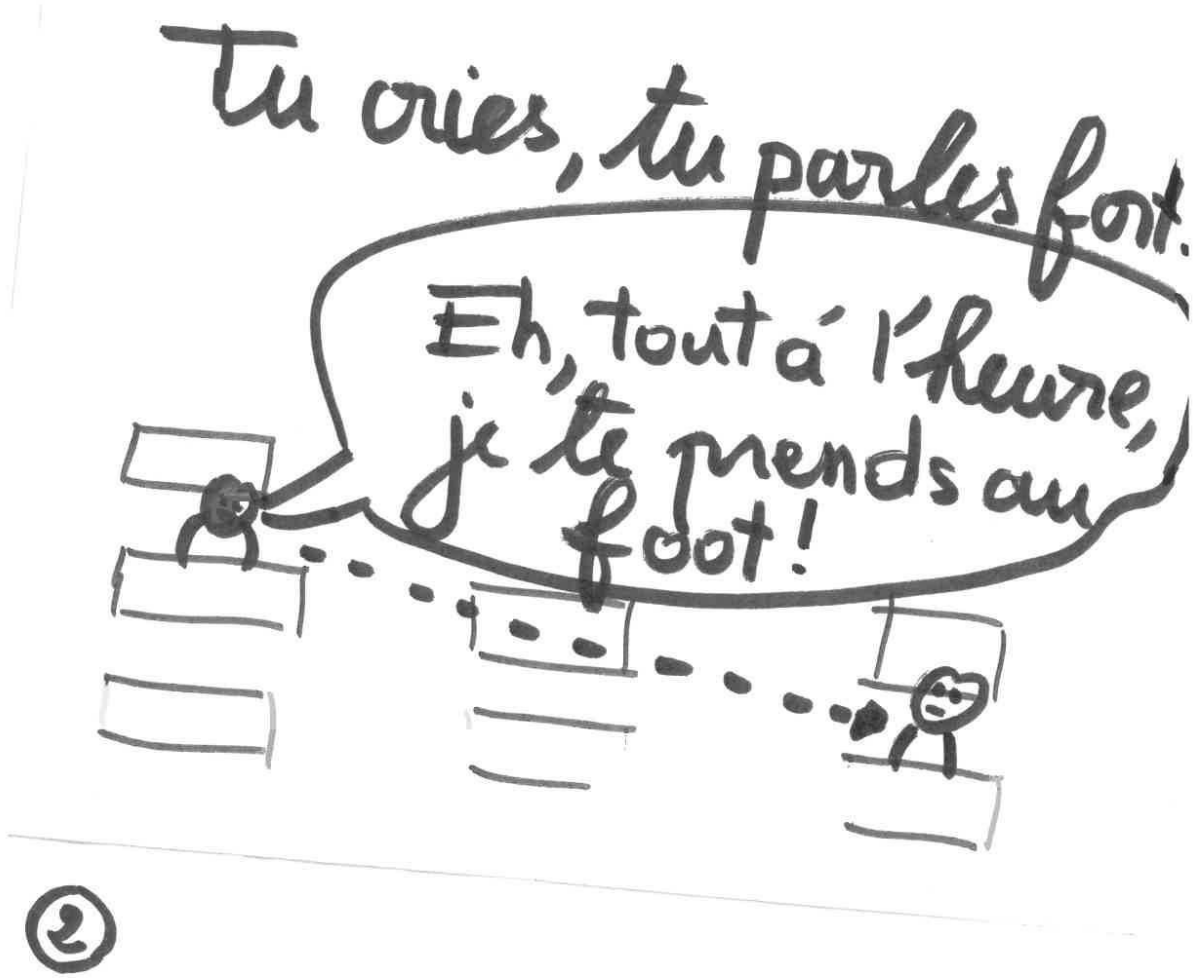 Tu cries, tu parles fort.
Eh, tout á l'heure,
je te prends au
foot!
2